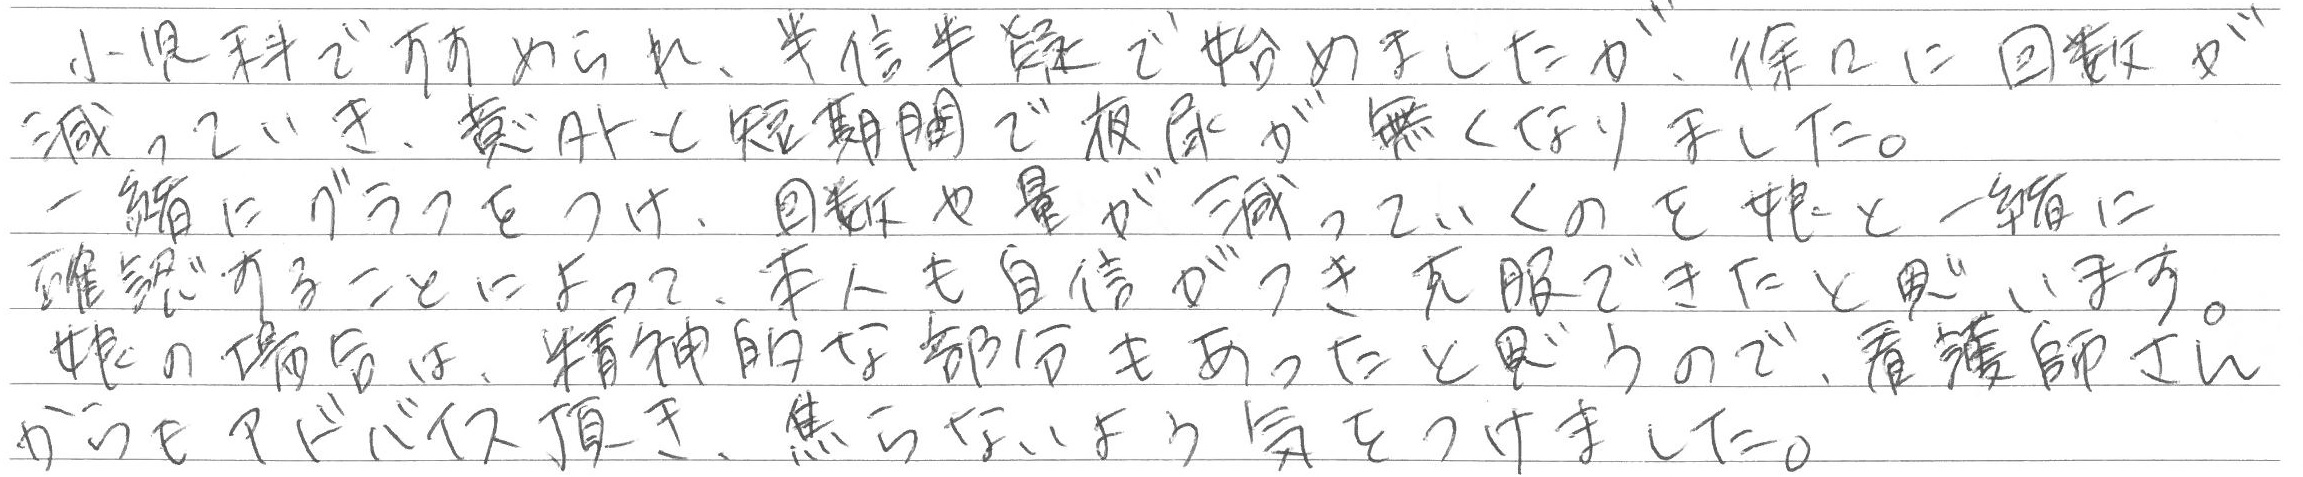 小児科ですすめられ、半信半疑で始めましたが、徐々に回数が
減っていき、意外と短期間で夜尿が無くなりました。
一緒にグラフをつけ、回数や量が減っていくのを娘と一緒に
確認することによって、本人も自信がつき克服できたと思います。
娘の場合は、精神的な部分もあったと思うので、看護師さん
からもアドバイス頂き、焦らないよう気をつけました。